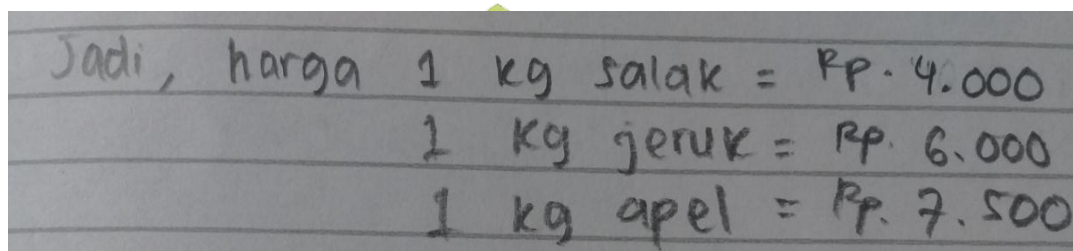 Jadi, harga 1 kg salak = Rp. 4.000
1 kg jeruk = Rp. 6.000
1 kg apel = Rp. 7.500